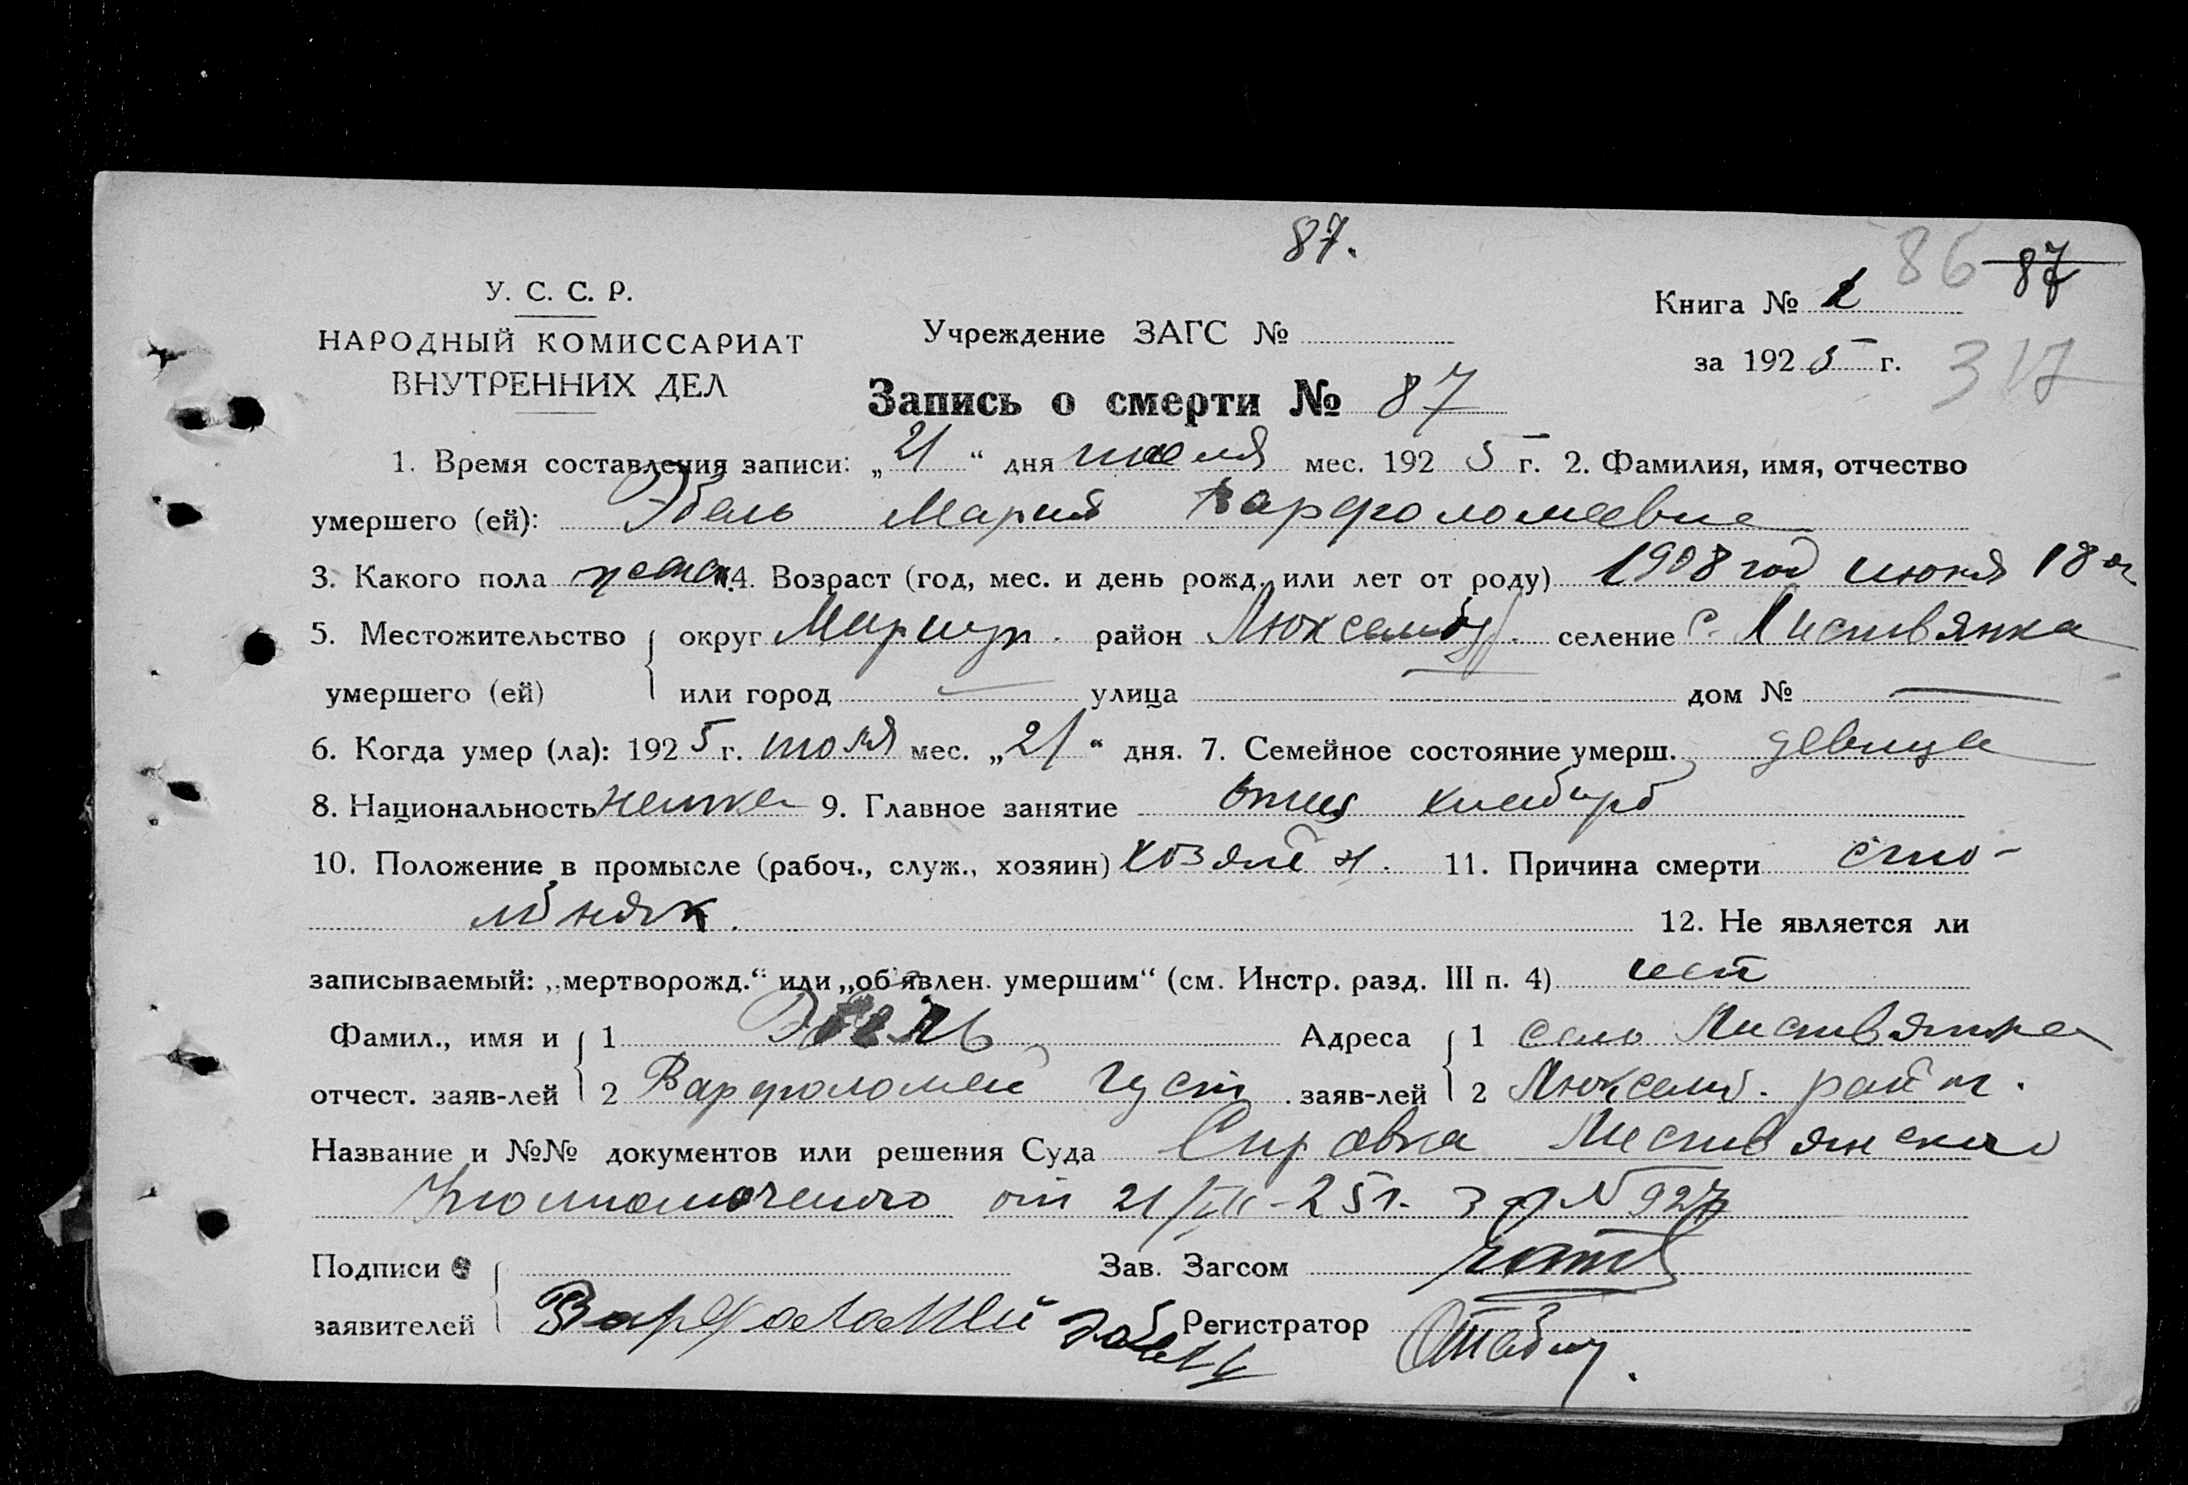 87.
86 87
У. С. С. Р.
Книга №
317
НАРОДНЫЙ КОМИССАРИАТ
Учреждение ЗАГС №
за 1925 г.
ВНУТРЕННИХ ДЕЛ
Запись о смерти № 87
1. Время составления записи: „21“ дня июля мес. 1925 г. 2. Фамилия, имя, отчество
умершего (ей): Эбель Мария Варфоломеевна
3. Какого пола женск. 4. Возраст (год, мес. и день рожд. или лет от роду) 1908 год июня 18
5. Местожительство округ Мариуп. район Люксембург. селение с. Листвянка
умершего (ей) или город — улица — дом № —
6. Когда умер (ла): 1925 г. июля мес. „21“ дня. 7. Семейное состояние умерш. девица
8. Национальность немка 9. Главное занятие отца хлебороб
10. Положение в промысле (рабоч., служ., хозяин) хозяин. 11. Причина смерти стол-
бняк. 12. Не является ли
записываемый: „мертворожд.“ или „об'явлен. умершим“ (см. Инстр. разд. III п. 4) нет
Фамил., имя и 1 Эбель Адреса 1 село Листвянка
отчест. заяв-лей 2 Варфоломей Густ. заяв-лей 2 Люксемб. район.
Название и №№ документов или решения Суда Справка Листвянского
Уполномоченого от 21/VII-25 г. за № 927
Подписи Зав. Загсом
заявителей Варфоломей Эбель Регистратор